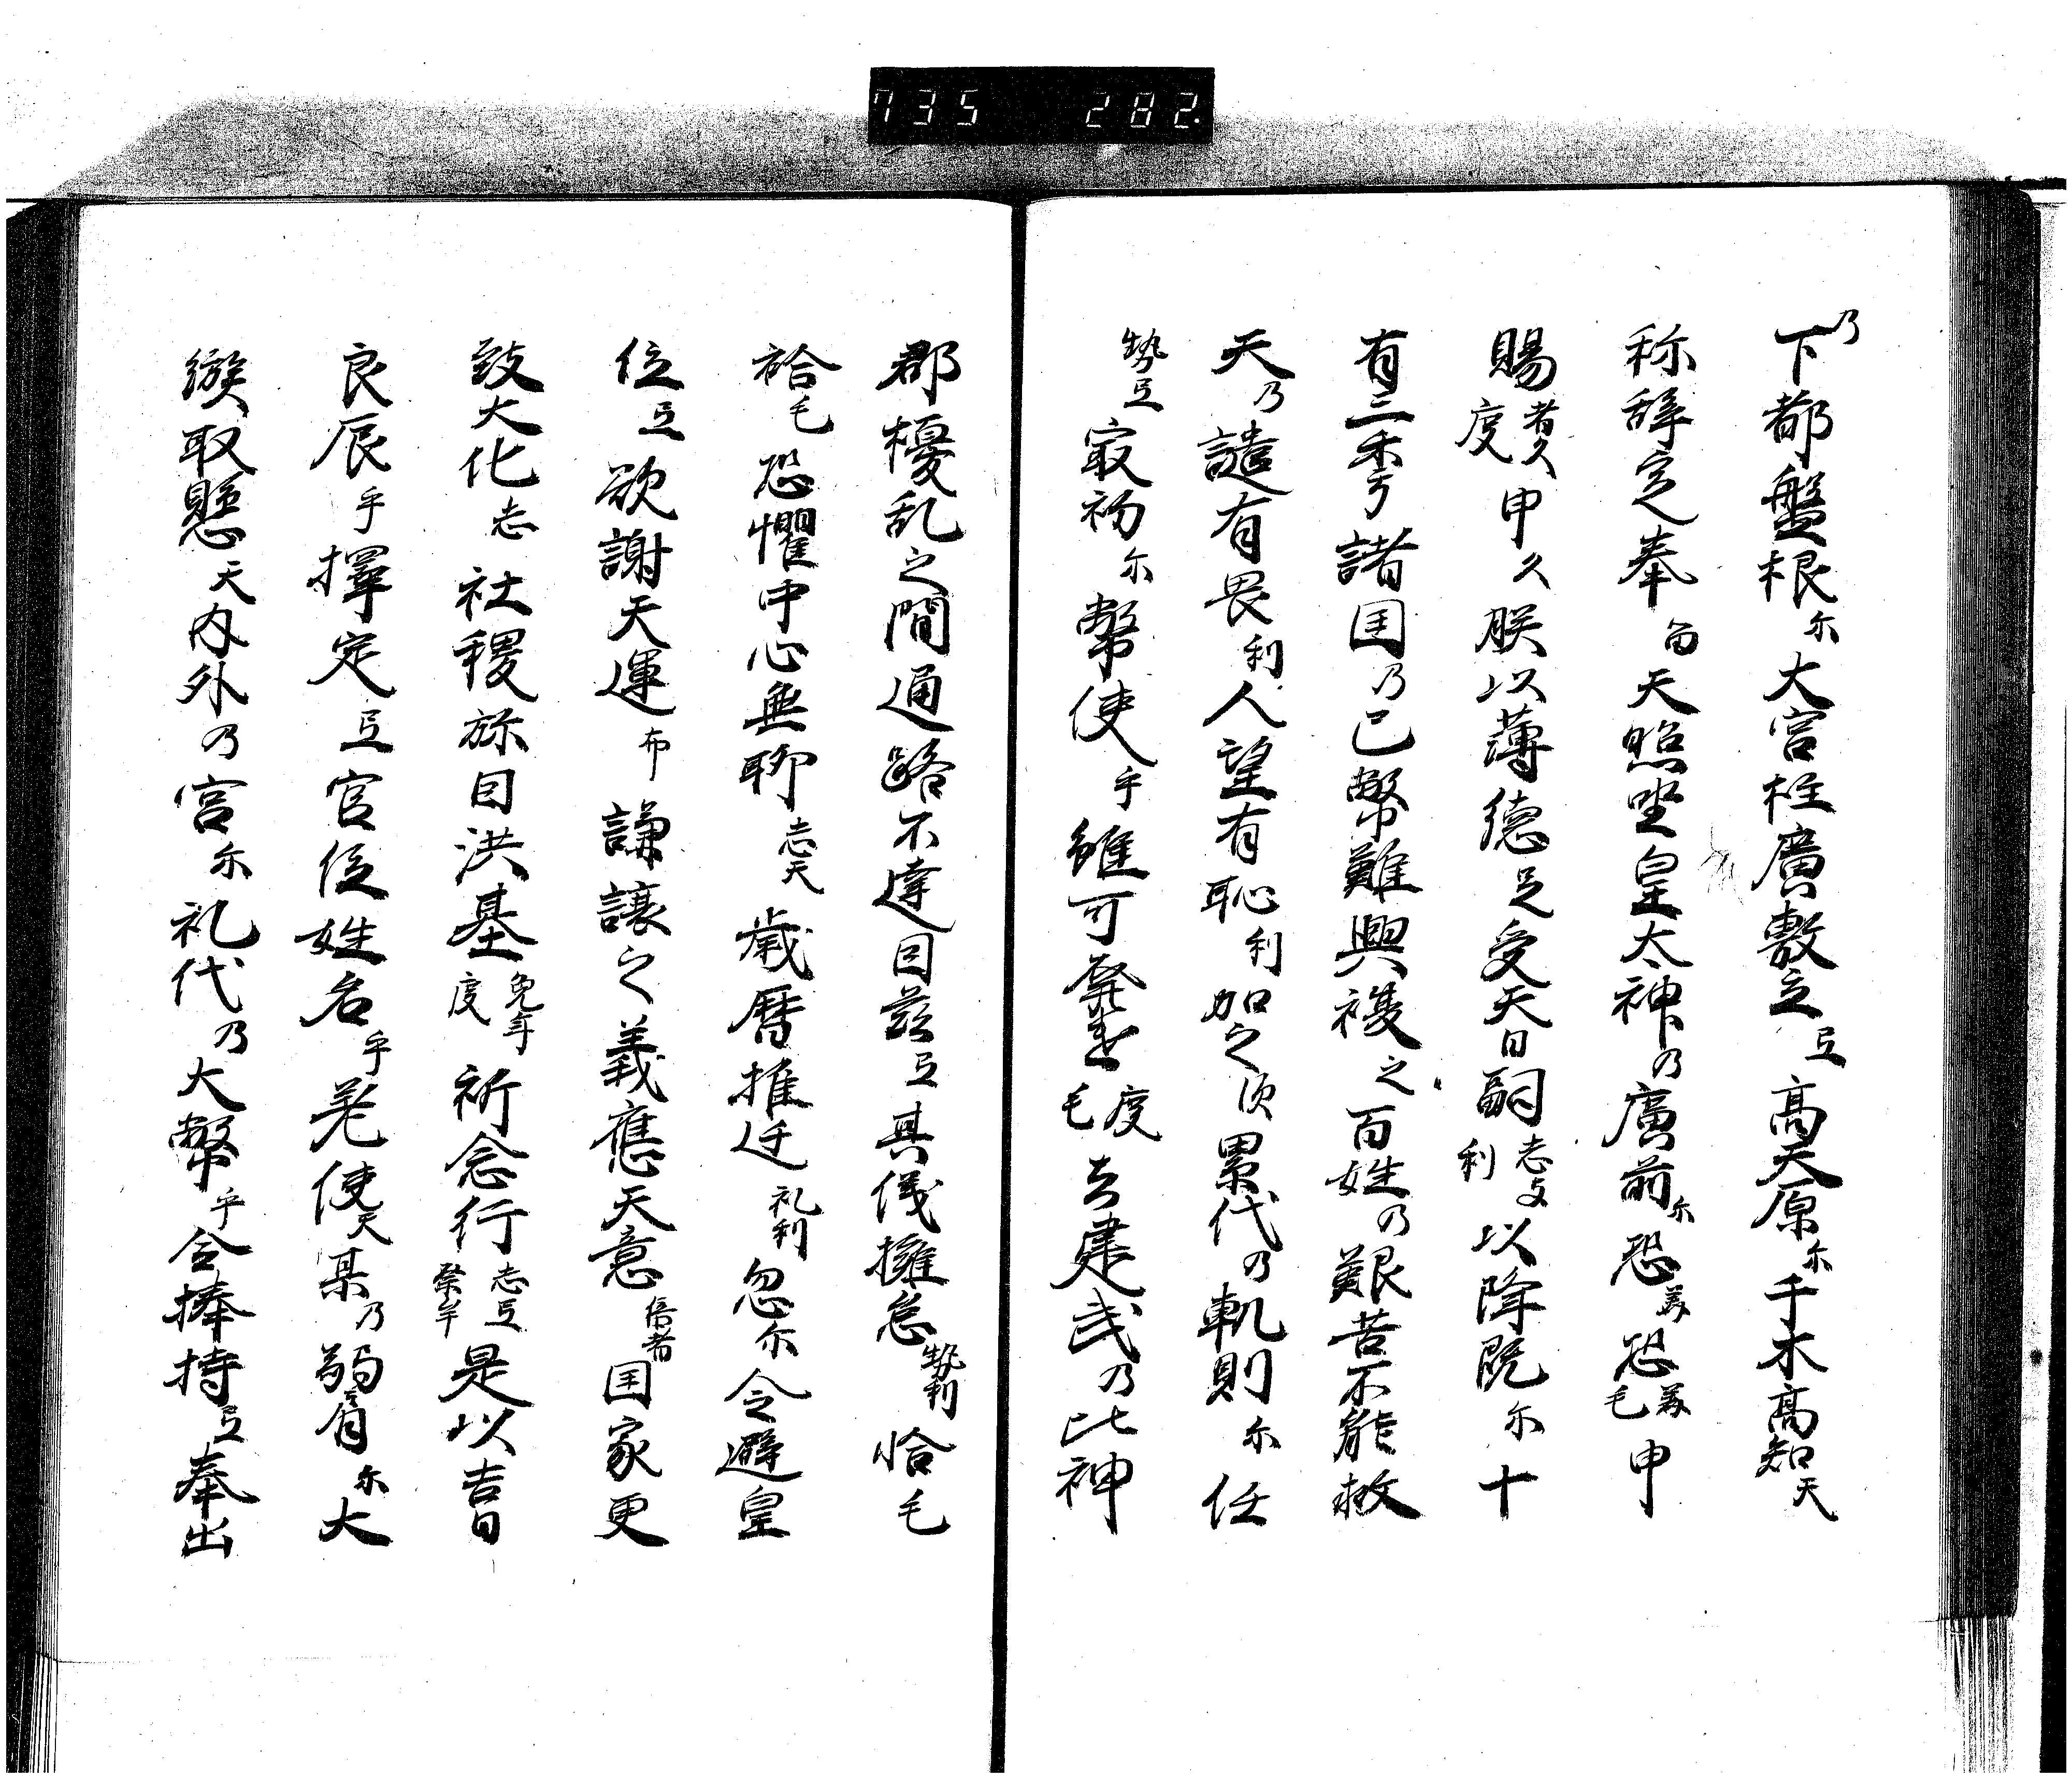 735 282
乃下都盤根尓大宮柱廣敷立弖高天原尓千木高知天
称辞定奉留天照坐皇太神乃廣前尓恐美恐美毛申
賜者久度申久朕以薄徳足受天日嗣志与利以降既尓十
有三季于諸国乃已幣難興複之百姓乃艱苦不能救
天乃譴有畏利人望有恥利加之須累代乃軌則尓任
勢弖寂初尓幣使乎雖可發遣度毛去建武乃比神
郡擾乱之間通路不達因茲弖其儀擁怠勢利恰毛
袷毛恐懼中心無聊志天歳暦推迁礼利忽尓令避皇
位弖欲謝天運布謙譲之義應天意倍者国家更
致大化志社稷祢因洪基免牟度祈念行志弖奈牟是以吉日
良辰乎擇定弖官位姓名乎差使天某乃弱肩尓大
繦取懸天内外乃宮尓礼代乃大幣乎令捧持弖奉出